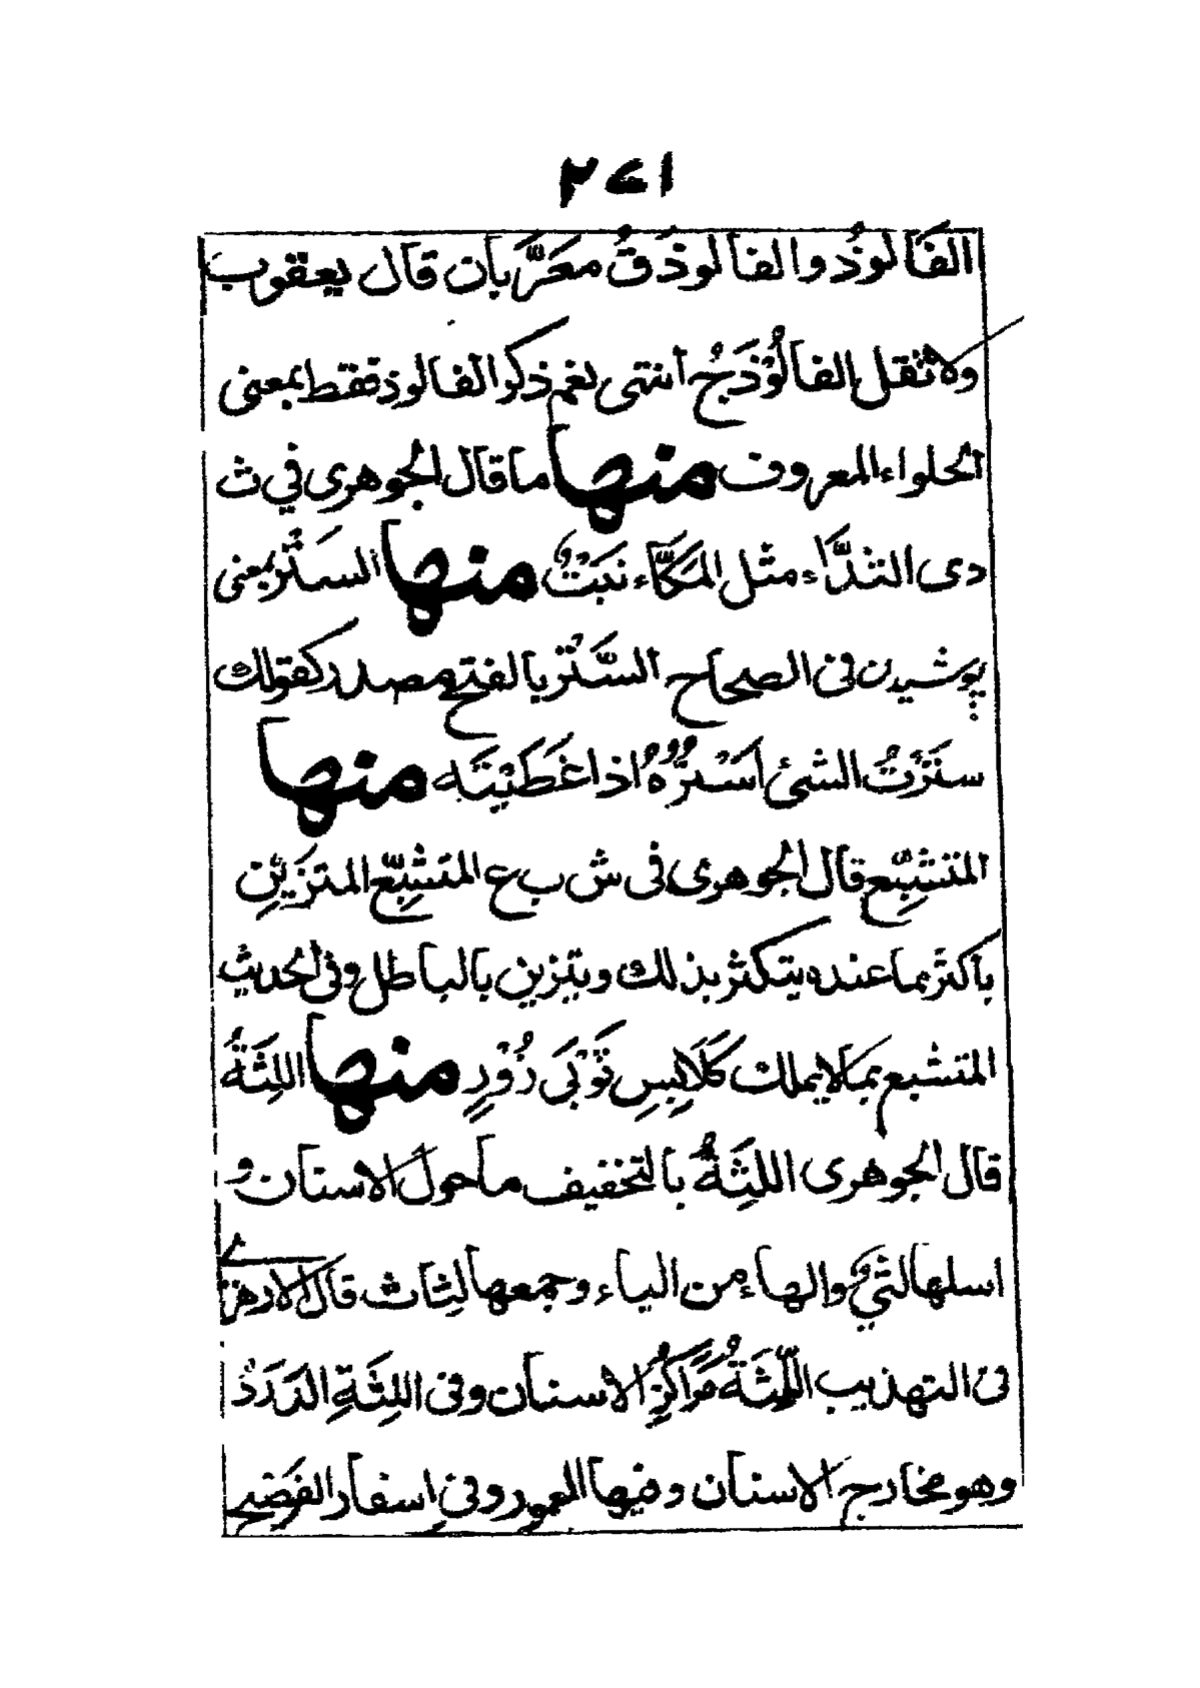 ٢٧١
الفَالوذُ والفالوذَقُ معرَّبان قال يعقوب
ولا تقل الفالُوْذَجُ انتهى نعم ذكر الفالوذ فقط بمعنى
الحلواء المعروف منها ما قال الجوهرى في ث
دى الثدَّاء مثل المكَّاء نَبَتٌ منها السَتْر بمعنى
پوشيدن فى الصحاح السَّتْر بالفتح مصدر كقولك
سترْتُ الشئ اَسْتُرُهُ اذا غَطَّيْتَه منها
المتشبِّع قال الجوهرى فى ش ب ع المتشبِّع المتزيِّن
باكثر مما عنده يتكثر بذلك ويتزين بالباطل وفى الحديث
المتشبع بما لا يملك كَلَابِسِ ثَوْبَى زُوْرٍ منها اللِثَةُ
قال الجوهرى اللِثَةُ بالتخفيف ما حول الاسنان و
اصلها لثىٌ والهاء من الياء وجمعها لِثاث قال الازهرے
فى التهذيب اللِّثَةُ مَرَاكِزُ الاسنان وفى اللِثَةِ الدَرَدُ
وهو مخارج الاسنان وفيها العمور وفى اسفار الفصيح